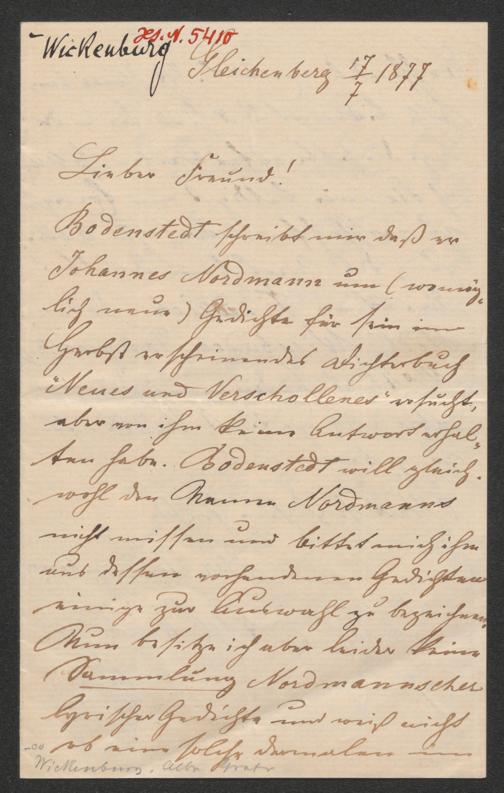 Wickenburg
Hs. N. 5410
Gleichenberg 17/7 1877
Lieber Freund!
Bodenstedt schreibt mir daß er
Johannes Nordmann um (womög-
lich neue) Gedichte für sein im
Herbst erscheinendes Dichterbuch
"Neues und Verschollenes" ersucht,
aber von ihm keine Antwort erhal-
ten habe. Bodenstedt will gleich-
wohl den Namen Nordmanns
nicht missen und bittet mich ihm
aus dessen vorhandenen Gedichten
einige zur Auswahl zu bezeichnen.
Nun besitze ich aber leider keine
Sammlung Nordmannscher
lyrischer Gedichte und weiß nicht
ob eine solche dermalen im
Wickenburg, Albr.